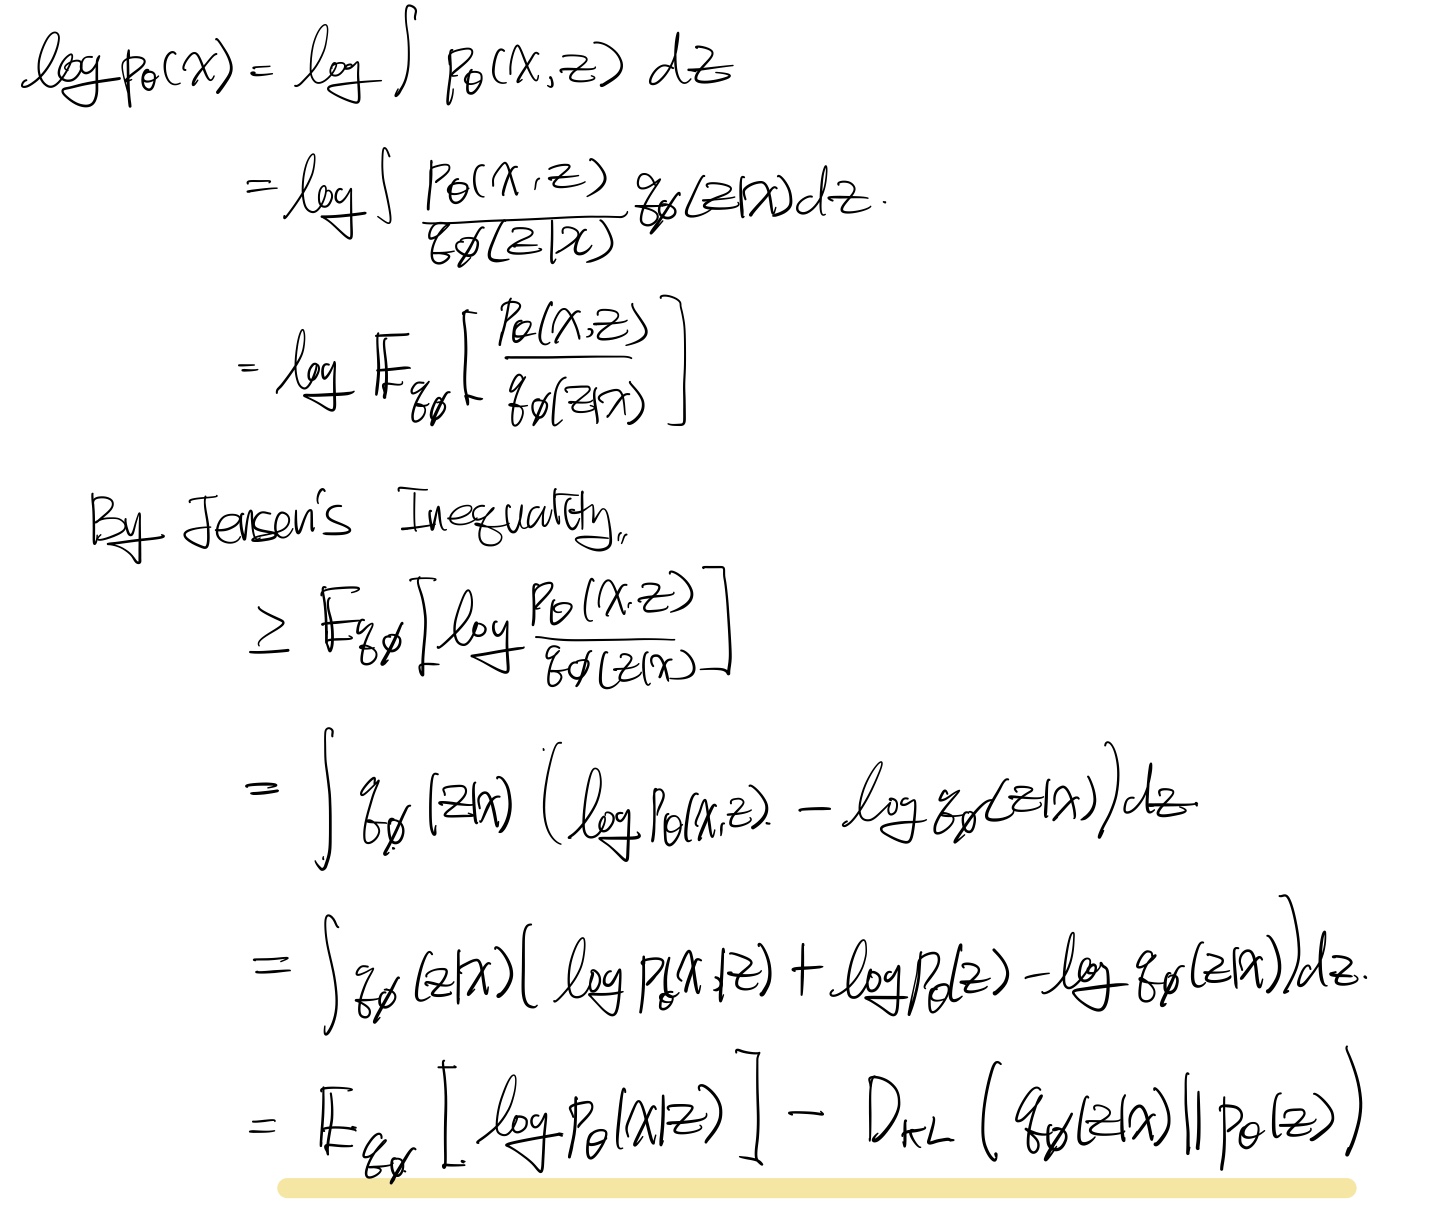 log p_θ(x) = log ∫ p_θ(x, z) dz
= log ∫ p_θ(x, z) / q_φ(z|x) q_φ(z|x) dz.
= log 𝔼_{q_φ} [ p_θ(x, z) / q_φ(z|x) ]
By Jensen's Inequality,
≥ 𝔼_{q_φ} [ log p_θ(x, z) / q_φ(z|x) ]
= ∫ q_φ(z|x) ( log p_θ(x, z) − log q_φ(z|x) ) dz
= ∫ q_φ(z|x) ( log p_θ(x|z) + log p_θ(z) − log q_φ(z|x) ) dz.
= 𝔼_{q_φ} [ log p_θ(x|z) ] − D_{KL} ( q_φ(z|x) || p_θ(z) )